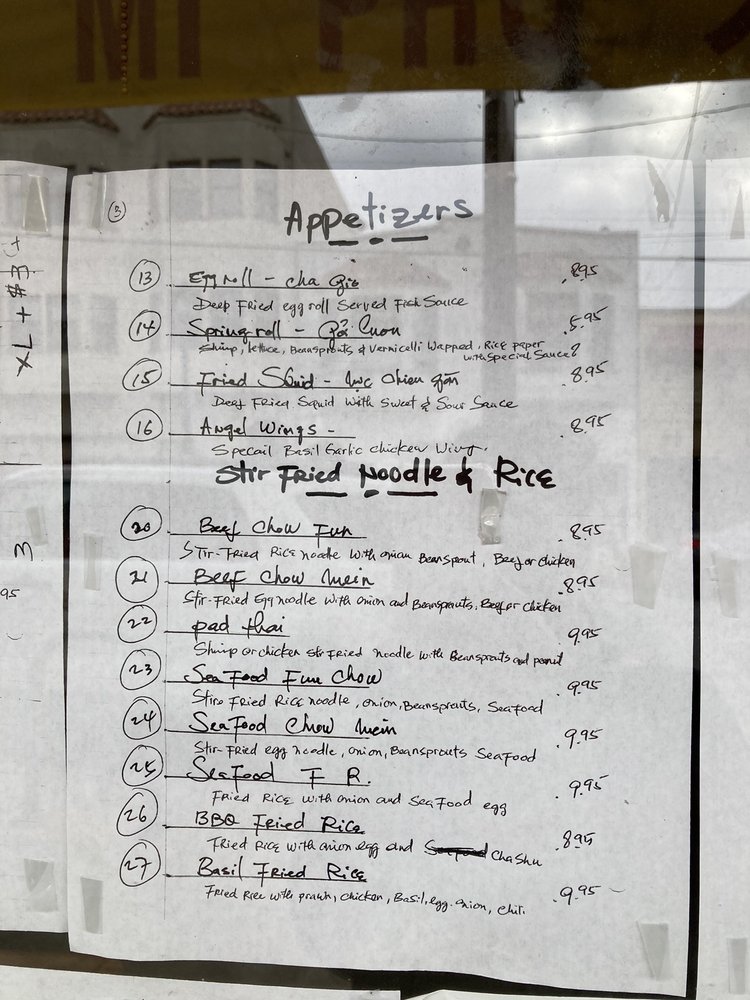 MI PHO
XL + #3
3
95
3
Appetizers
13 Egg roll - cha Gio .8.95
Deep Fried egg roll Served Fish Sauce
14 Spring roll - Gỏi Cuon .5.95
Shrimp, lettuce, Beansprouts & Vermicelli Wapped, Rice paper
with special Sauce
15 Fried Squid - Mực chien giòn .8.95
Deep Fried Squid With Sweet & Sour Sauce
16 Angel Wings - .8.95
Specail Basil Garlic chicken Wing.
Stir Fried Noodle & Rice
20 Beef Chow Fun .8.95
Stir-Fried Rice noodle With onion Beansprout, Beef or chicken
21 Beef Chow mein .8.95
Stir-Fried Egg noodle With onion and Beansprouts, Beef or chicken
22 pad thai 9.95
Shrimp or chicken Stir Fried noodle With Beansprouts and peanut
23 Sea Food Fun Chow .9.95
Stire Fried Rice noodle, onion, Beansprouts, SeaFood
24 SeaFood Chow mein .9.95
Stir-Fried egg noodle, onion, Beansprouts SeaFood
25 SeaFood F R. .9.95
Fried Rice With onion and SeaFood egg
26 BBQ Fried Rice .8.95
Fried Rice With onion egg and Chashu
27 Basil Fried Rice .9.95
Fried Rice with prawn, chicken, Basil, egg. onion, chili.